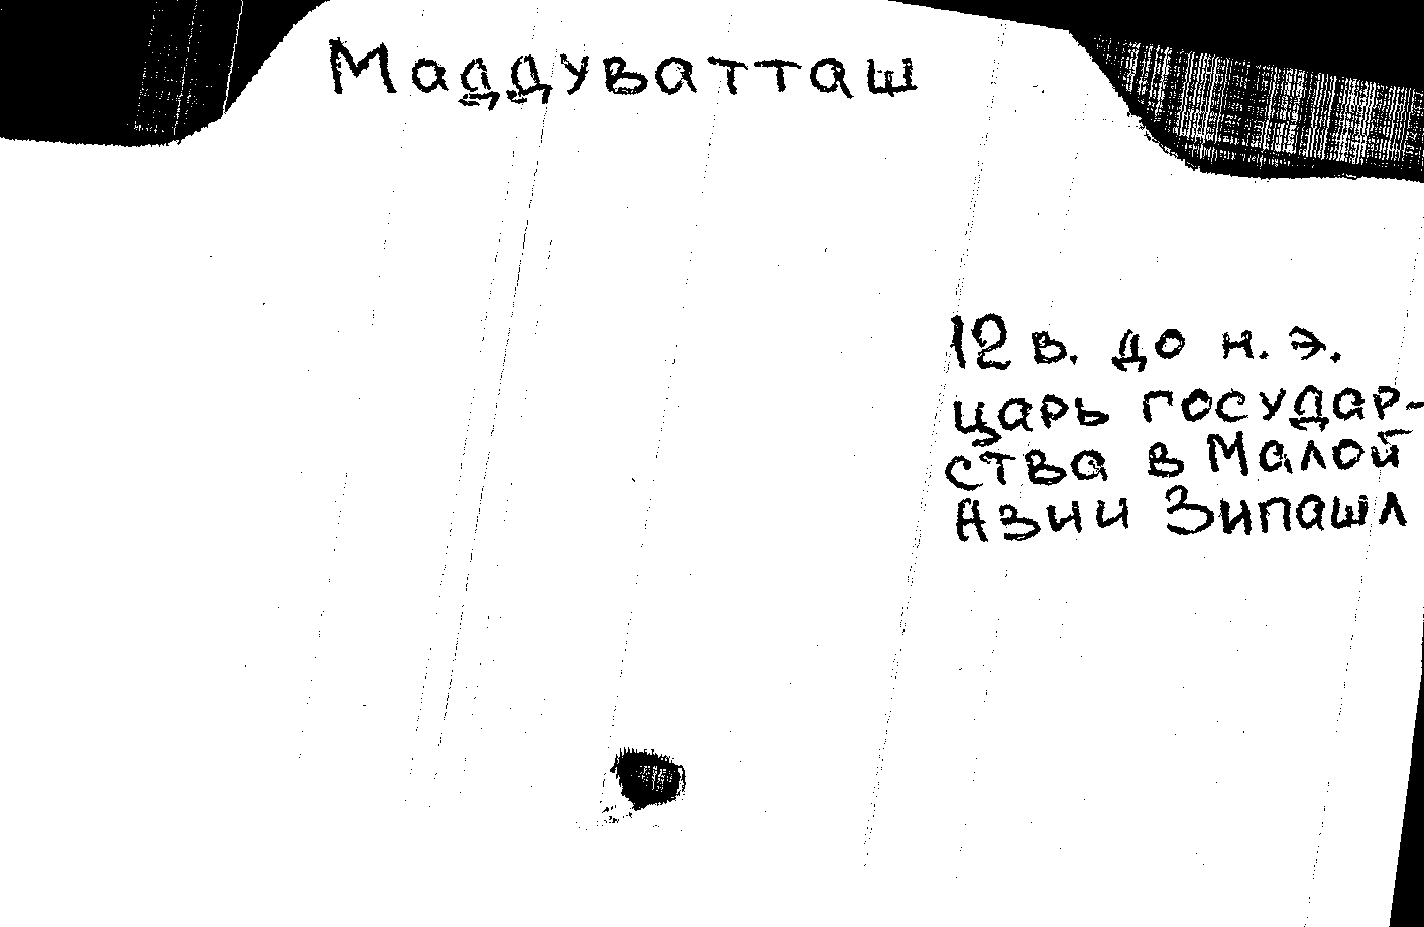 Маддуватташ
12 в. до н. э.
царь государ-
ства в Малой
Азии Зипашл